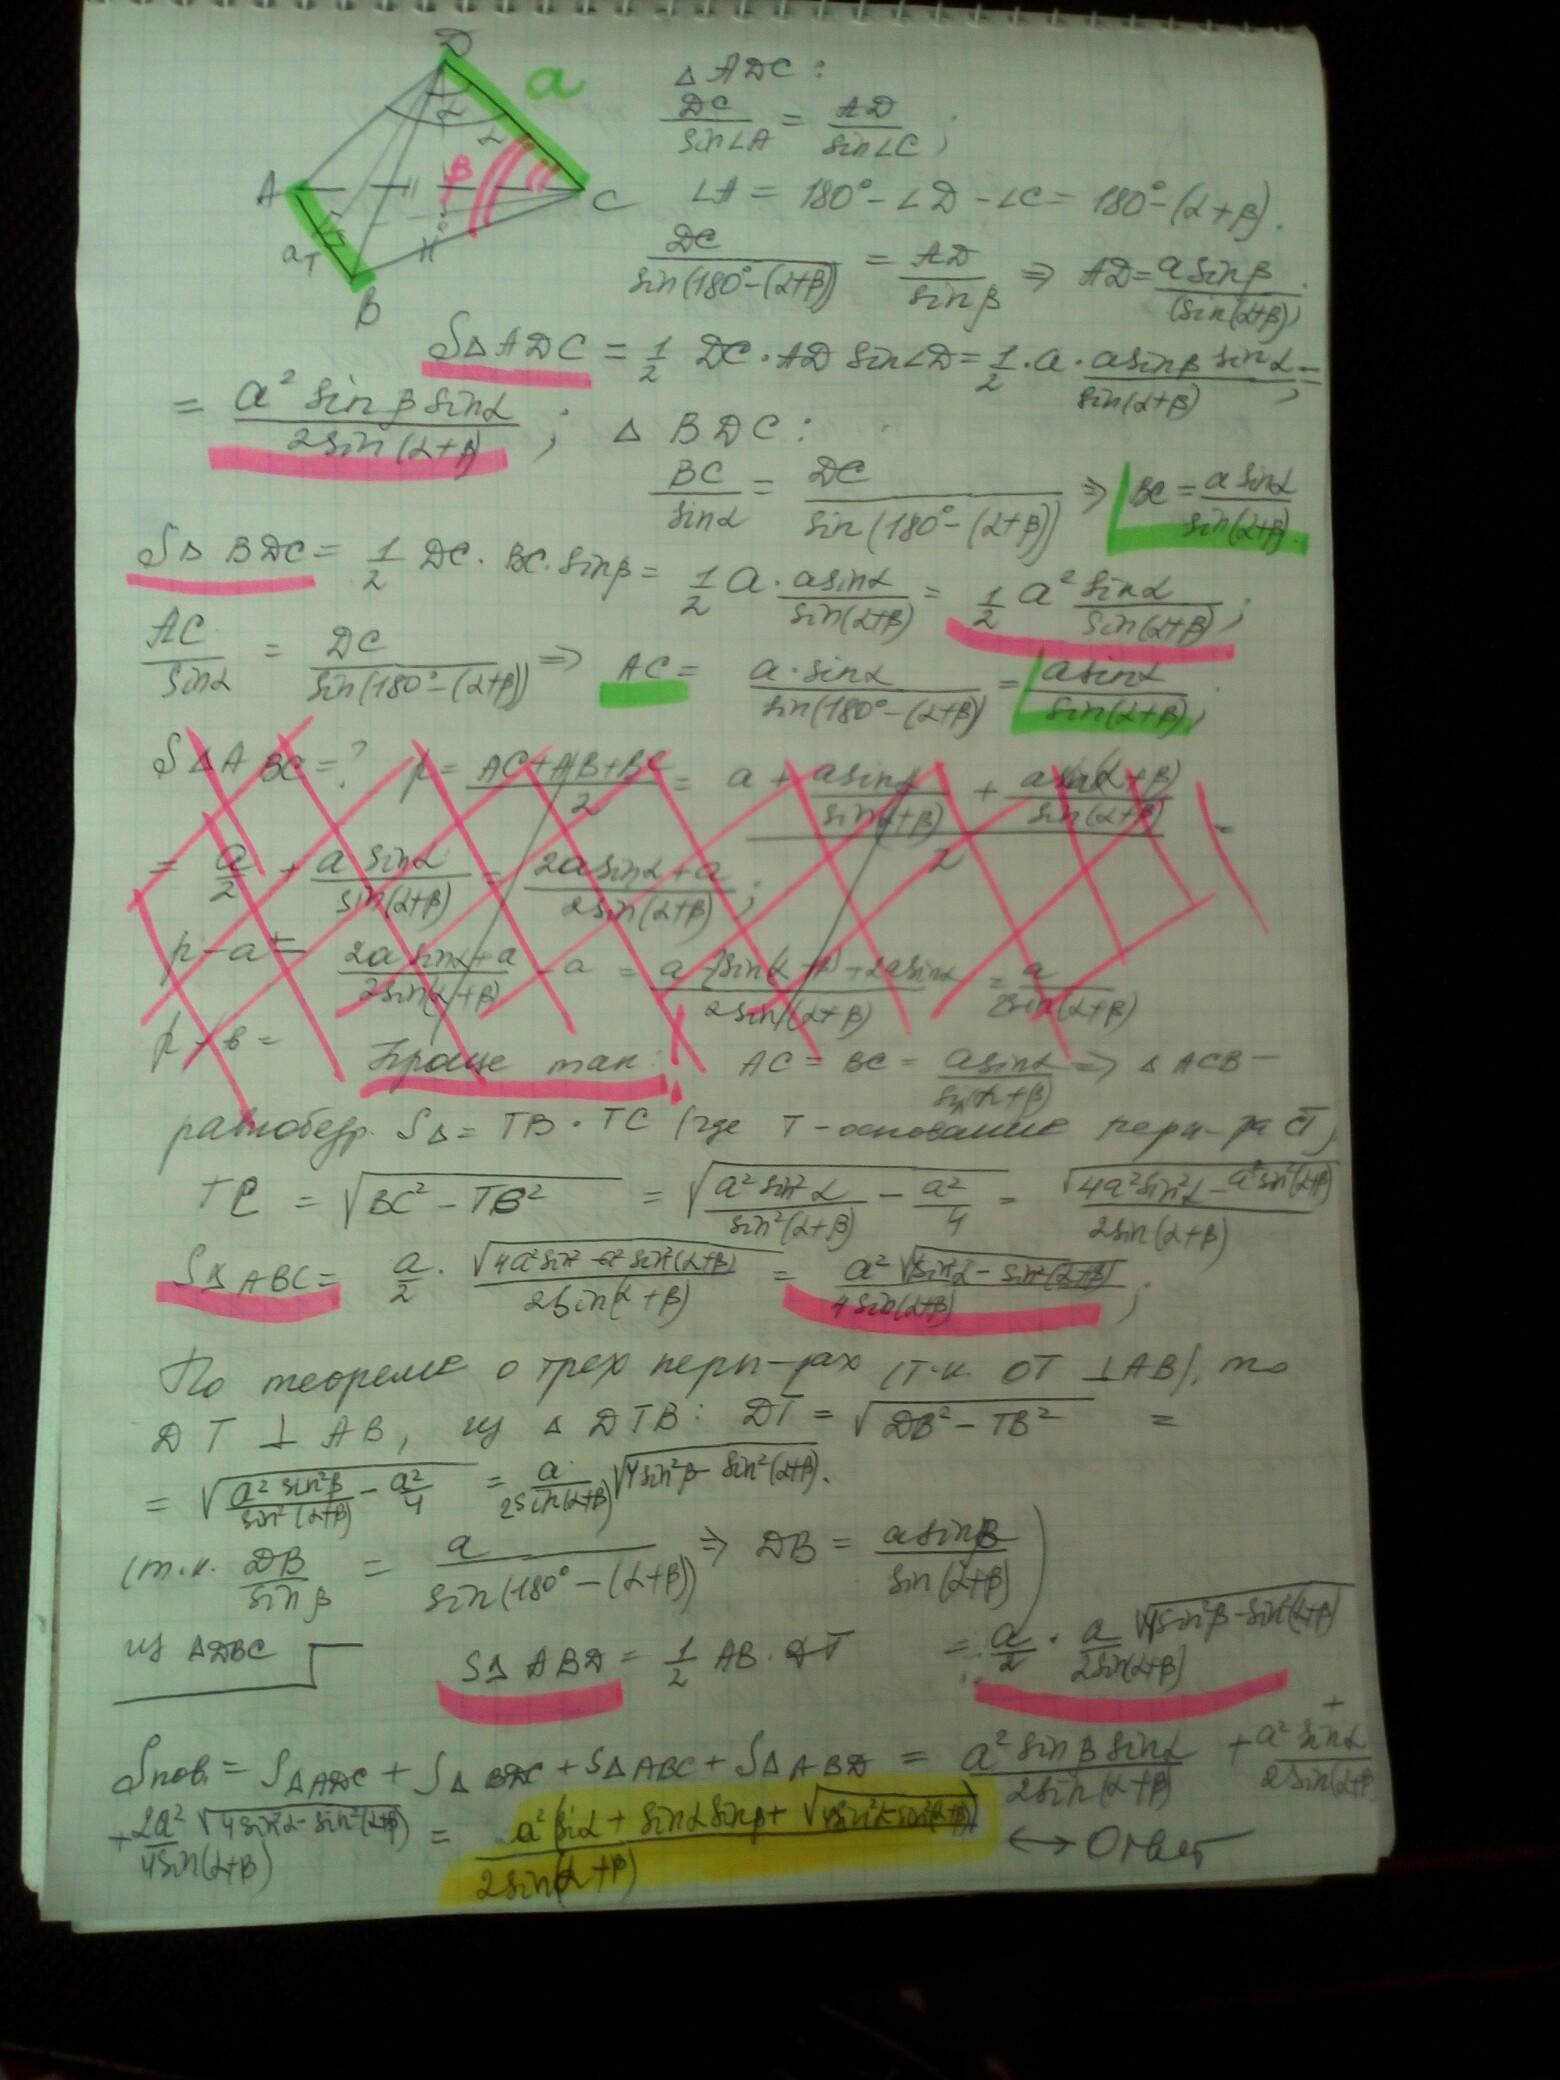 D
a
α
α
β
A
C
O
a
T
B
△ADC:
DC/sin∠A = AD/sin∠C ;
∠A = 180° - ∠D - ∠C = 180° - (α+β).
DC/sin(180°-(α+β)) = AD/sinβ ⇒ AD = a sinβ/sin(α+β);
S△ADC = 1/2 DC·AD sin∠D = 1/2·a·a sinβ sinα/sin(α+β) =
= a² sinβ sinα/2sin(α+β) ; △BDC:
BC/sinα = DC/sin(180°-(α+β)) ⇒ BC = a sinα/sin(α+β).
S△BDC = 1/2 DC·BC·sinβ = 1/2 a·a sinα/sin(α+β) = 1/2 a² sinα/sin(α+β) ;
AC/sinα = DC/sin(180°-(α+β)) ⇒ AC = a·sinα/sin(180°-(α+β)) = a sinα/sin(α+β) ;
S△ABC = ? p = AC+AB+BC/2 = a + a sinα/sin(α+β) + a sin(α+β)/sin(α+β) / 2 =
= a/2 + a sinα/sin(α+β) = 2a sinα+a/2sin(α+β) ;
p-a = 2a sinα+a/2sin(α+β) - a = = a/2sin(α+β)
p-в =
Проще так: AC = BC = a sinα/sin(α+β) ⇒ △ACB -
равнобедр. S△ = TB·TC (где T - основание перп-ра CT)
TC = √BC² - TB² = √a² sin²α/sin²(α+β) - a²/4 = √4a²sin²α - a²sin²(α+β)/2sin(α+β)
S△ABC = a/2 · √4a²sin² - a² sin²(α+β)/2sin(α+β) = a²√4sin²α - sin²(α+β)/4sin(α+β) ;
По теореме о трех перп-рах (т.к. OT ⊥ AB), то
DT ⊥ AB, из △DTB: DT = √DB² - TB² =
= √a² sin²β/sin²(α+β) - a²/4 = a/2sin(α+β) √4sin²β - sin²(α+β).
(т.к. DB/sinβ = a/sin(180°-(α+β)) ⇒ DB = a sinβ/sin(α+β))
из △DBC
S△ABD = 1/2 AB·DT = a/2 · a√4sin²β - sin²(α+β)/2sin(α+β)
Sпов. = S△ADC + S△BDC + S△ABC + S△ABD = a² sinβ sinα/2sin(α+β) + a² sinα/2sin(α+β) +
+ 2a²√4sin²α - sin²(α+β)/4sin(α+β) = a²(siα + sinα sinβ + √4sin²α - sin²(α+β))/2sin(α+β) ↔ Ответ